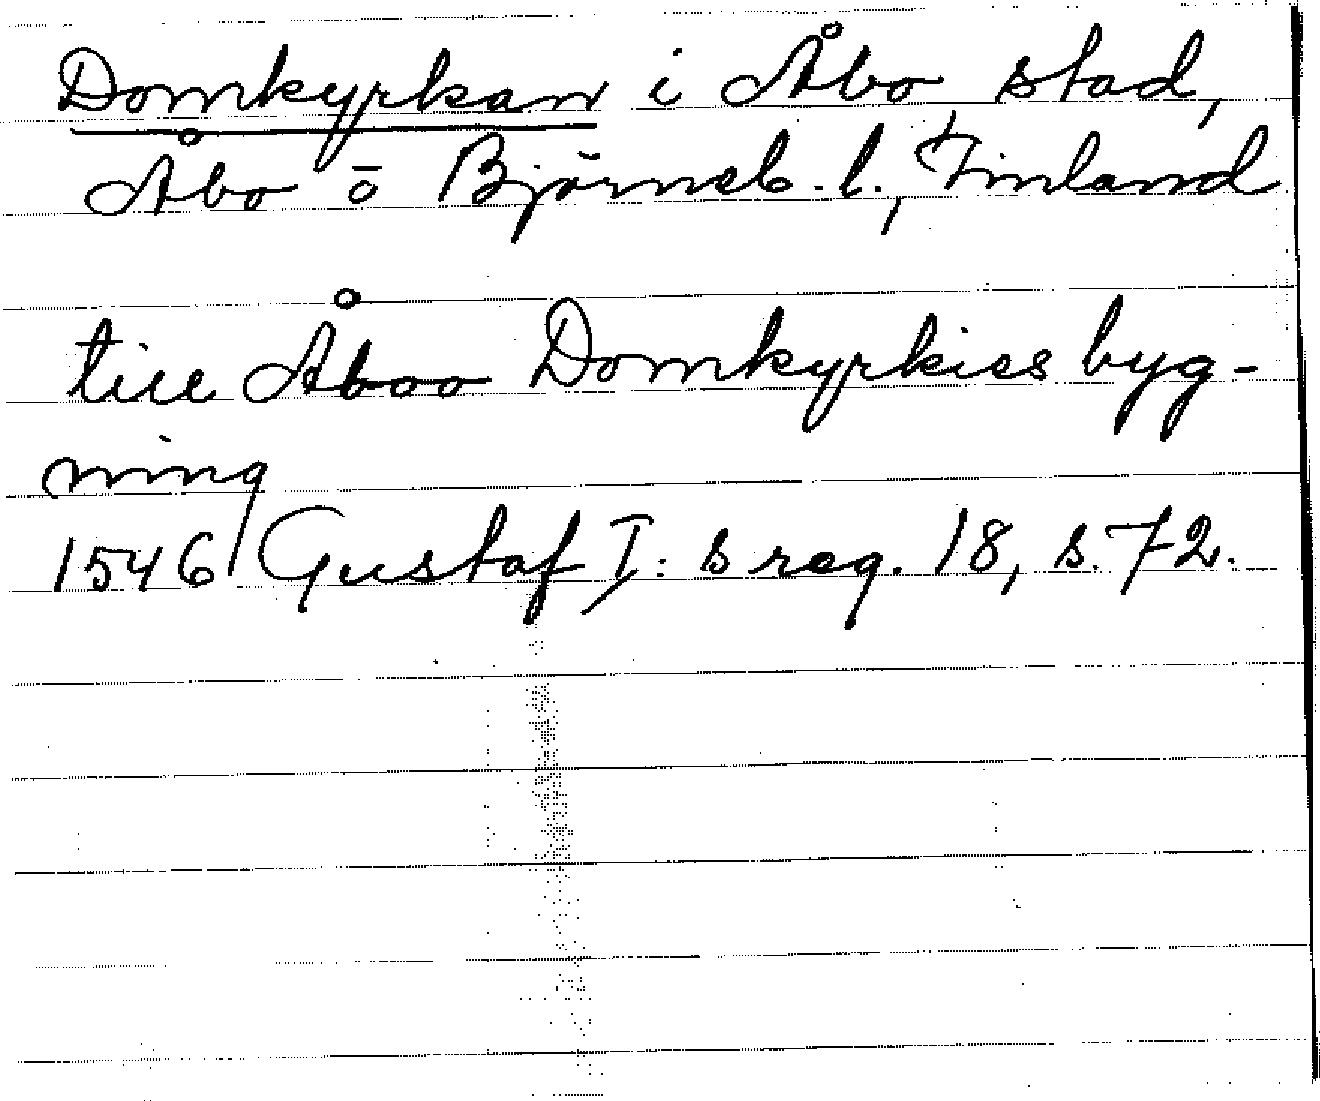 Domkyrkan i Åbo stad,
Åbo o Björneb. l., Finland
till Åboo Domkyrkies byg-
ning
1546 Gustaf I: s reg. 18, s. 72.